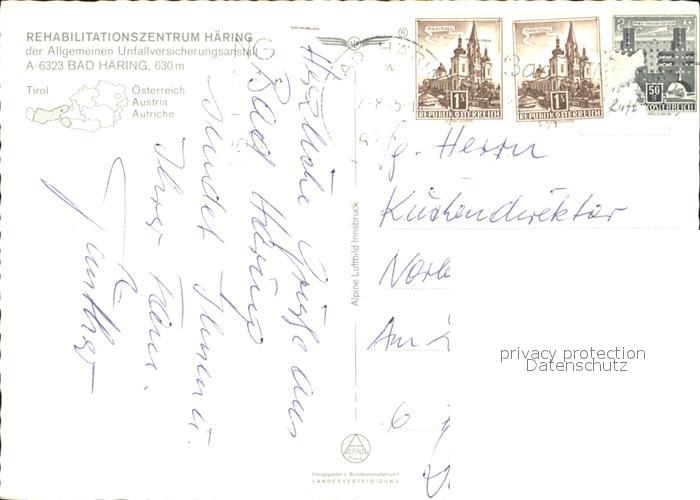 REHABILITATIONSZENTRUM HÄRING
der Allgemeinen Unfallversicherungsanstalt
A-6323 BAD HÄRING, 630 m
Tirol
Österreich
Austria
Autriche
Herzliche Grüße aus
Bad Häring
sendet Ihnen u.
Ihrer Fam.
Günther
Alpine Luftbild Innsbruck
ALPINE
Freigegeben v. Bundesministerium f.
LANDESVERTEIDIGUNG
®
MARIAZELL
1S
REPUBLIK ÖSTERREICH
MARIAZELL
1S
REPUBLIK ÖSTERREICH
50
REPUBLIK ÖSTERREICH
BAD HÄRING
Herrn
Küchendirektor
Am
6
privacy protection
Datenschutz